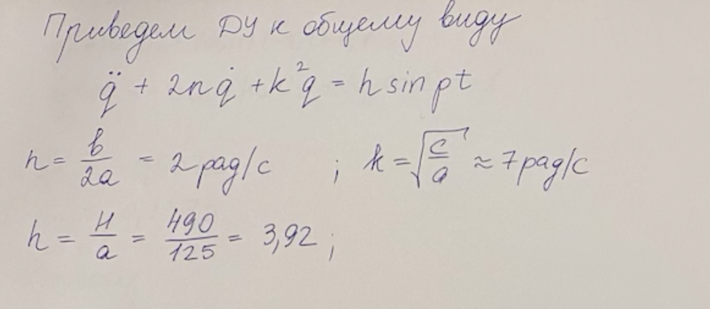 Приведем ДУ к общему виду
q̈ + 2nq̇ + k²q = h sin pt
n = b/2a = 2 рад/с ; k = √(c/a) ≈ 7 рад/с
h = H/a = 490/125 = 3,92 ;